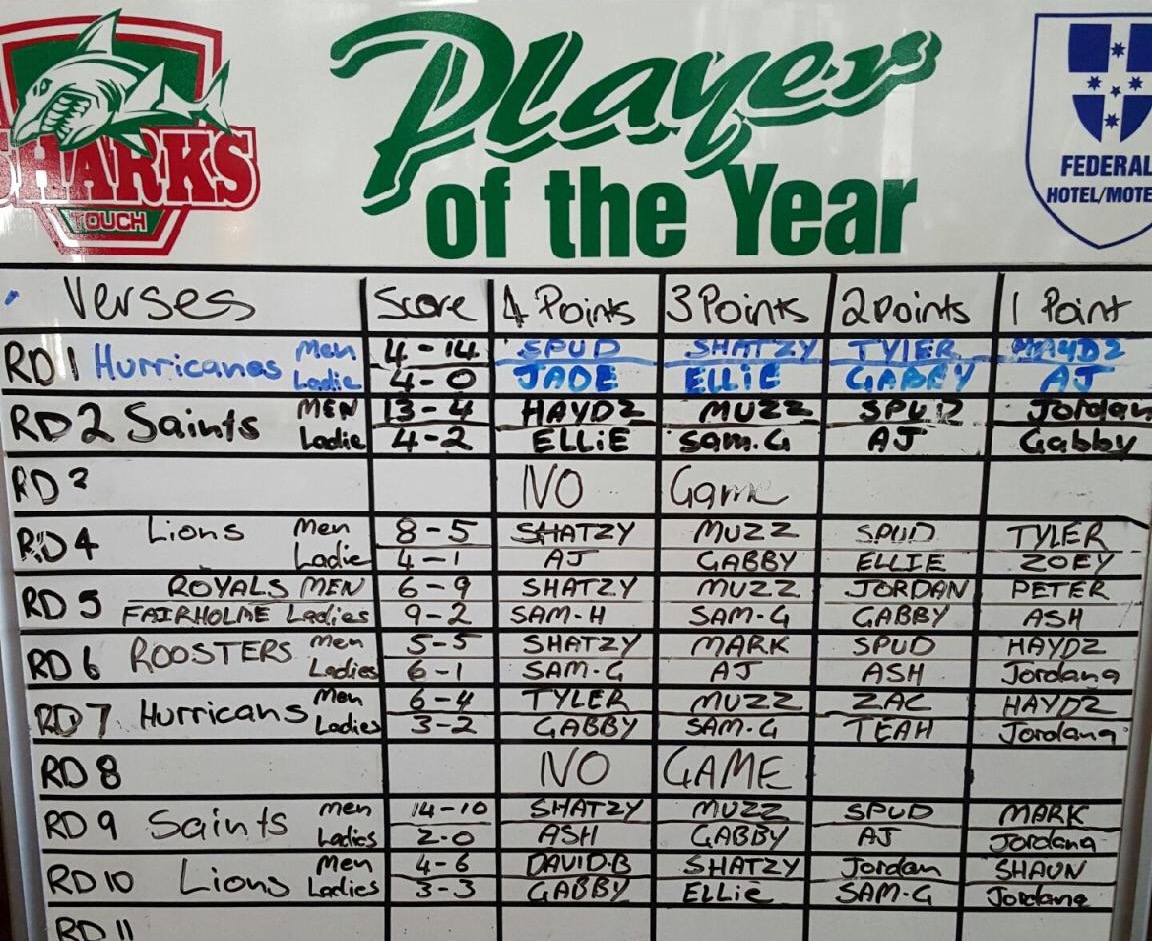 SHARKS
TOUCH
Player
of the Year
FEDERAL
HOTEL/MOTE
Verses Score 4 Points 3 Points 2 Points 1 Point
RD 1 Hurricanes Men 4-14 SPUD SHATZY TYLER HAYDZ
Ladie 4-0 JADE ELLIE GABBY AJ
RD 2 Saints MEN 13-4 HAYDZ MUZZ SPUD Jordan
Ladie 4-2 ELLIE Sam.G AJ Gabby
RD 3 NO Game
RD 4 Lions Men 8-5 SHATZY MUZZ SPUD TYLER
Ladie 4-1 AJ GABBY ELLIE ZOEY
RD 5 ROYALS MEN 6-9 SHATZY MUZZ JORDAN PETER
FAIRHOLME Ladies 9-2 SAM-H SAM-G GABBY ASH
RD 6 ROOSTERS Men 5-5 SHATZY MARK SPUD HAYDZ
Ladies 6-1 SAM-G AJ ASH Jordana
RD 7 Hurricans Men 6-4 TYLER MUZZ ZAC HAYDZ
Ladies 3-2 GABBY SAM-G TEAH Jordana
RD 8 NO GAME
RD 9 Saints Men 14-10 SHATZY MUZZ SPUD MARK
Ladies 2-0 ASH GABBY AJ Jordana
RD 10 Lions Men 4-6 DAVID.B SHATZY Jordan SHAUN
Ladies 3-3 GABBY ELLIE SAM-G Jordana
RD 11